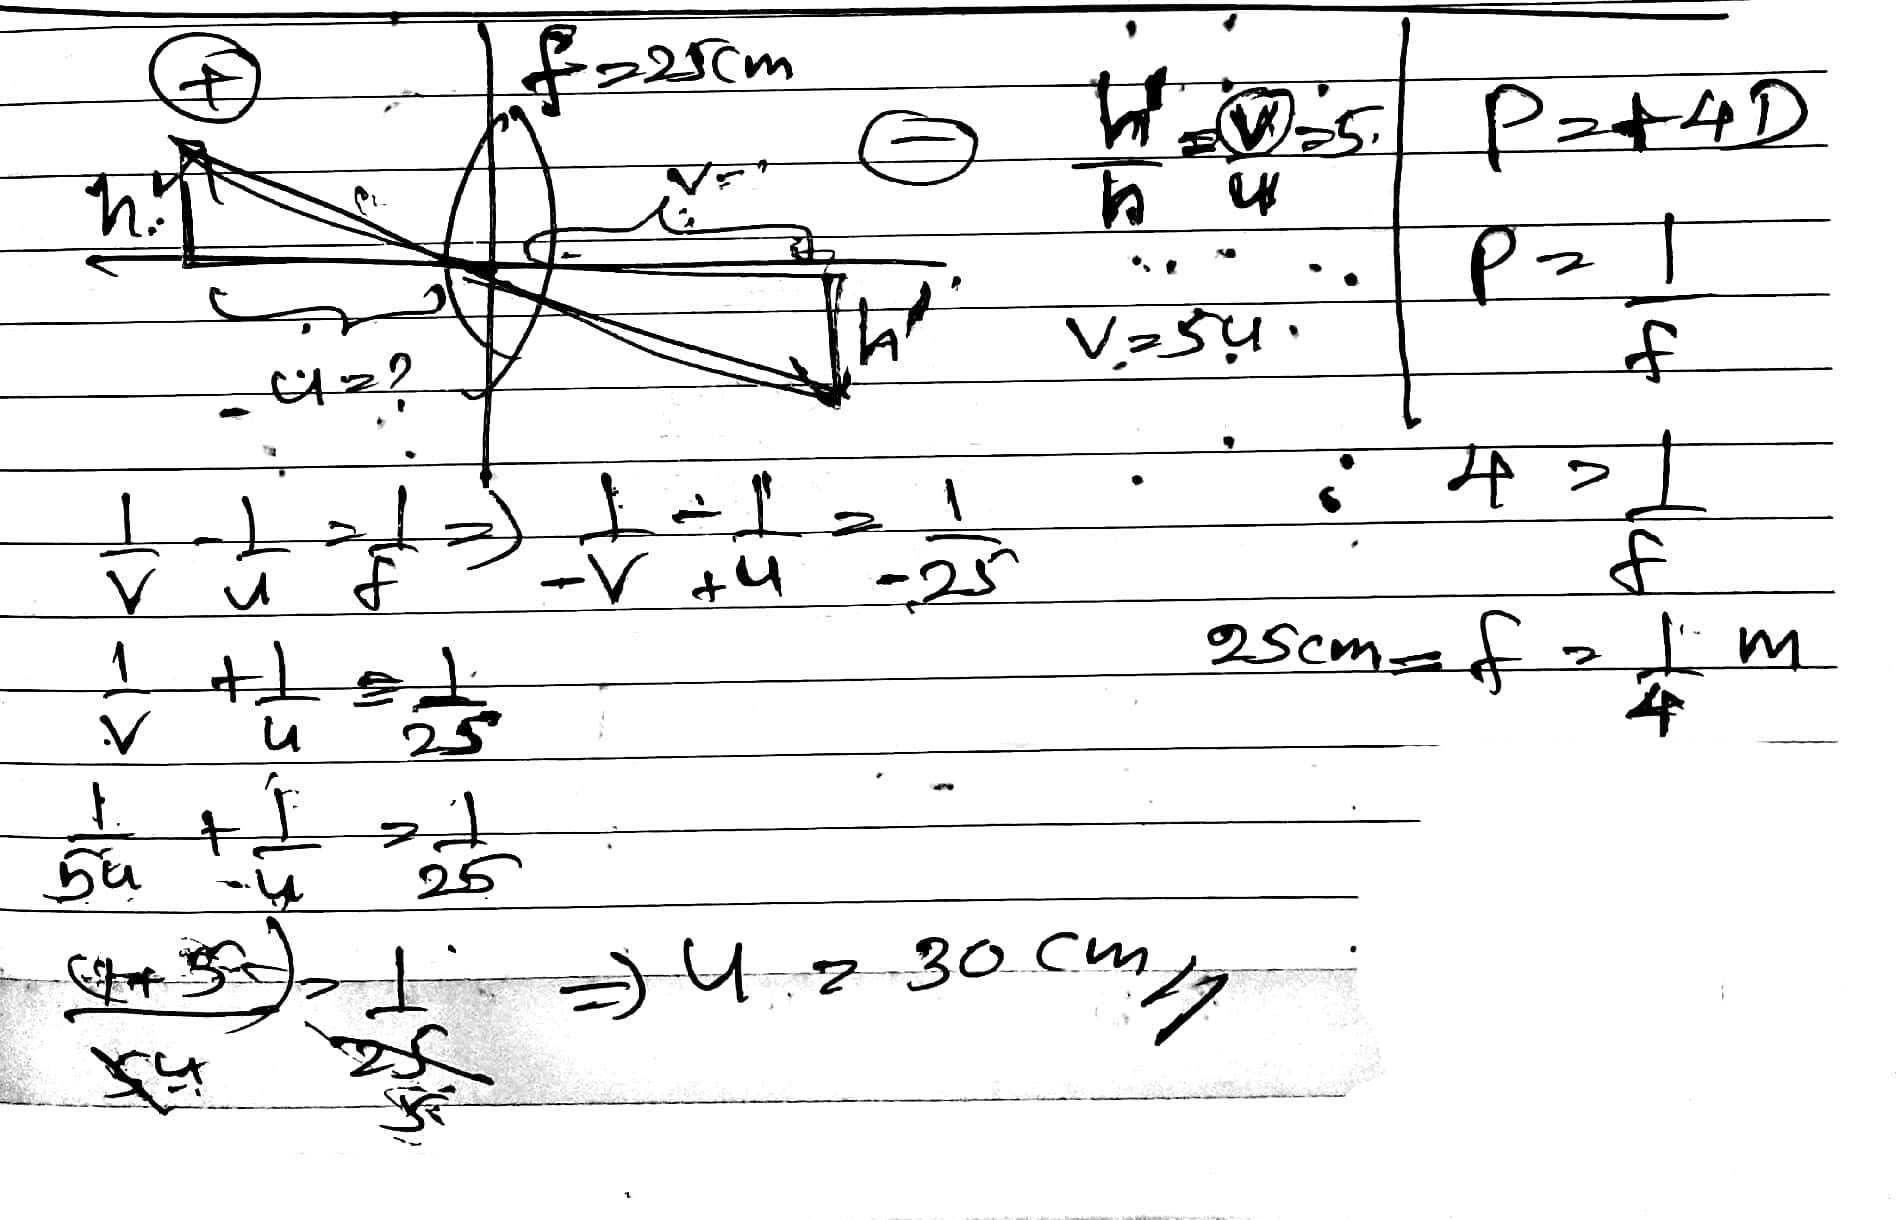 +
f = 25cm
h
v = ?
- u = ?
h'
-
h'/h = v/u = 5
v = 5u
P = +4D
P = 1/f
4 = 1/f
25cm = f = 1/4 m
1/v - 1/u = 1/f => 1/-v - 1/+u = 1/-25
1/v + 1/u = 1/25
1/5u + 1/-u = 1/25
(1+5)/5u = 1/25 => u = 30 cm
5